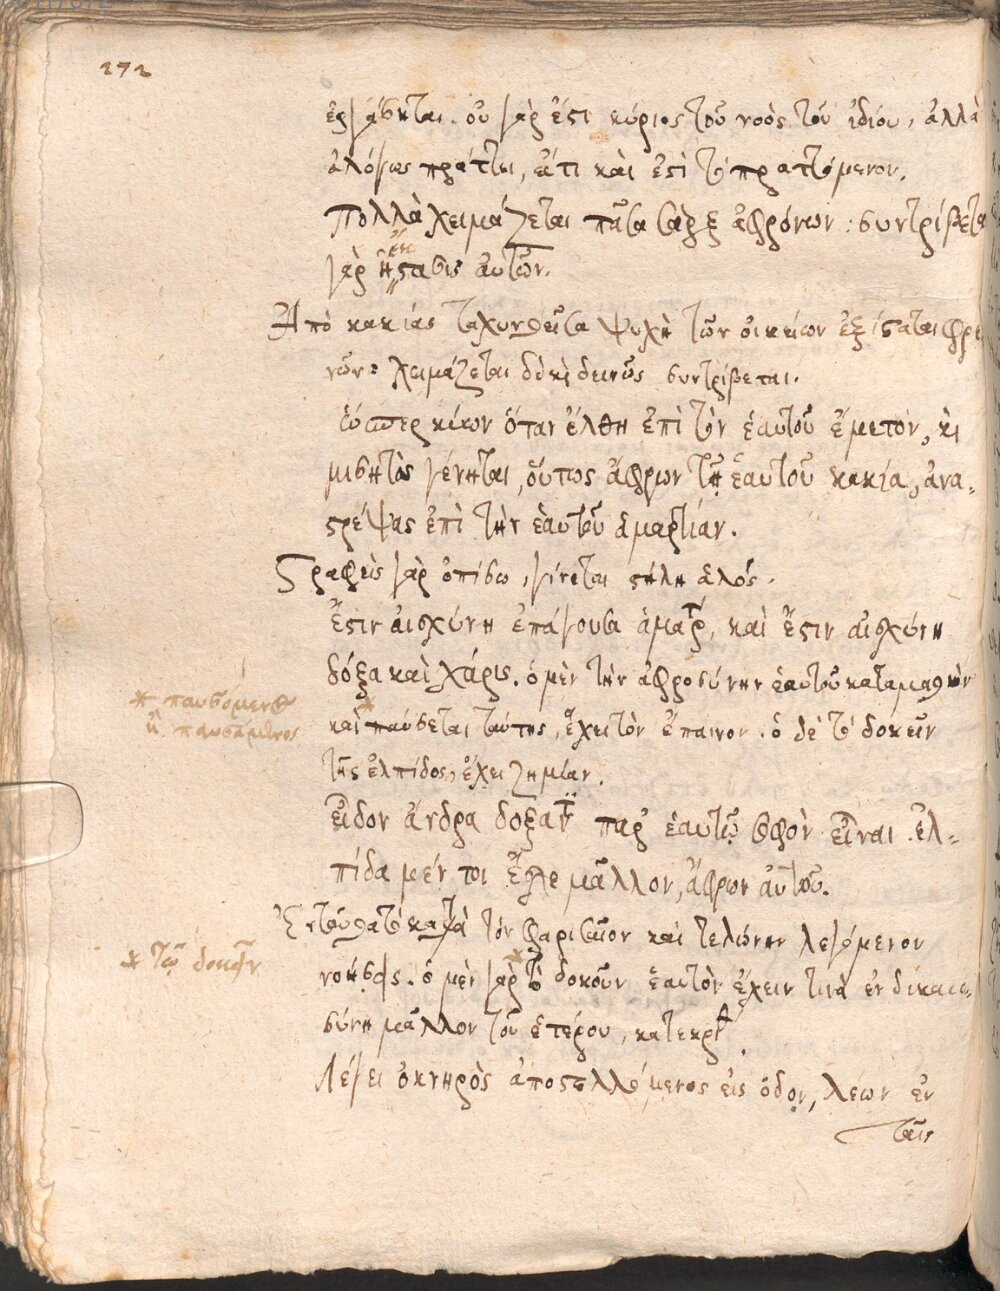 272
ἐργάσηται. οὐ γάρ ἐστι κύριος τοῦ νοὸς τοῦ ἰδίου, ἀλλὰ
ἀλόγως πράττει, εἴ τι καὶ ἐστὶ τὸ πραττόμενον.
Πολλὰ χειμάζεται πᾶσα σὰρξ ἀφρόνων: συντρίβεται
γὰρ ἡ ἔκστασις αὐτῶν.
Ἀπὸ κακίας ταχυνθεῖσα ψυχὴ τῶν οἰκείων ἐξίσταται φρε
νῶν: χειμάζεται δὲ κὶ δεινῶς συντρίβεται.
ὥσπερ κύων ὅταν ἔλθῃ ἐπὶ τὸν ἑαυτοῦ ἔμετον, κὶ
μισητὸς γένηται, οὕτως ἄφρων τῇ ἑαυτοῦ κακίᾳ, ἀνα-
στρέψας ἐπὶ τὴν ἑαυτοῦ ἁμαρτίαν.
Στραφεὶς γὰρ ὀπίσω, γίνεται στήλη ἁλός.
Ἔστιν αἰσχύνη ἐπάγουσα ἁμαρτ, καὶ ἔστιν αἰσχύνη
δόξα καὶ χάρις. ὁ μὲν τὴν ἀφροσύνην ἑαυτοῦ καταμαθὼν
* παυσόμενος
καὶ * παύσεται ταύτης, ἔχει τὸν ἔπαινον. ὁ δὲ τὸ δοκεῖν
ἢ παυσάμενος
τῆς ἐλπίδος, ἔχει ζημίαν.
εἶδον ἄνδρα δόξαντ παρ ἑαυτῷ σοφὸν εἶναι. ἐλ-
πίδα μέν τοι ἔσχε μᾶλλον, ἄφρων αὐτοῦ.
Ἐντεῦθα τὸ κατὰ τὸν φαρισαῖον καὶ τελώνην λεγόμενον
* τῷ δοκεῖν
νοήσεις. ὁ μὲν γὰρ * τὸ δοκοῦν ἑαυτὸν ἔχειν τινὰ ἐν δικαιο-
σύνῃ μᾶλλον τοῦ ἑτέρου, κατεκρ
Λέγει ὀκνηρὸς ἀποστελλόμενος εἰς ὁδον, λέων ἐν
ταῖς